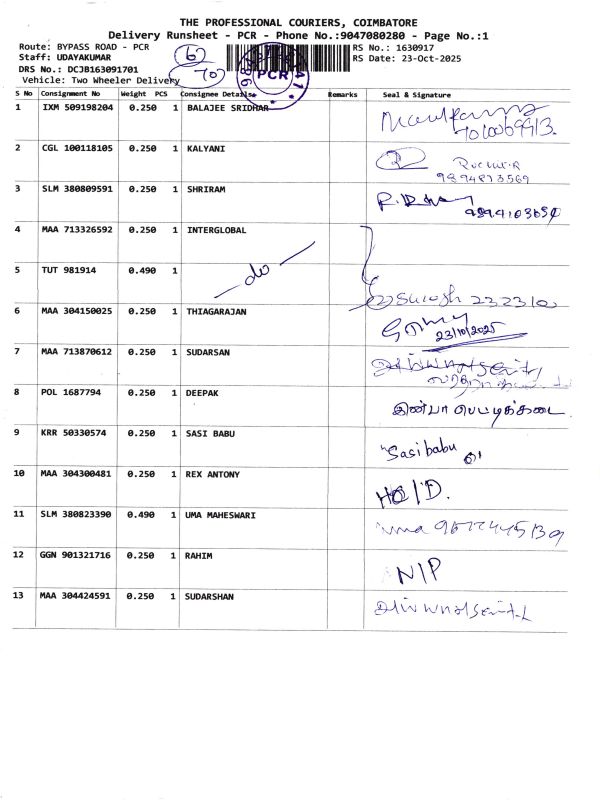 THE PROFESSIONAL COURIERS, COIMBATORE
Delivery Runsheet - PCR - Phone No.:9047080280 - Page No.:1
Route: BYPASS ROAD - PCR
RS No.: 1630917
Staff: UDAYAKUMAR
RS Date: 23-Oct-2025
DRS No.: DCJB163091701
Vehicle: Two Wheeler Delivery
62
70
PCR
S No Consignment No Weight PCS Consignee Details Remarks Seal & Signature
1 IXM 509198204 0.250 1 BALAJEE SRIDHAR
2 CGL 100118105 0.250 1 KALYANI
9894873569
3 SLM 380809591 0.250 1 SHRIRAM
4 MAA 713326592 0.250 1 INTERGLOBAL
5 TUT 981914 0.490 1 — do —
Suresh 223310
6 MAA 304150025 0.250 1 THIAGARAJAN
23/10/2025
7 MAA 713870612 0.250 1 SUDARSAN
8 POL 1687794 0.250 1 DEEPAK இன்பா பெட்டிக்கடை
9 KRR 50330574 0.250 1 SASI BABU Sasibabu
10 MAA 304300481 0.250 1 REX ANTONY HO/D.
11 SLM 380823390 0.490 1 UMA MAHESWARI uma
12 GGN 901321716 0.250 1 RAHIM N/P
13 MAA 304424591 0.250 1 SUDARSHAN